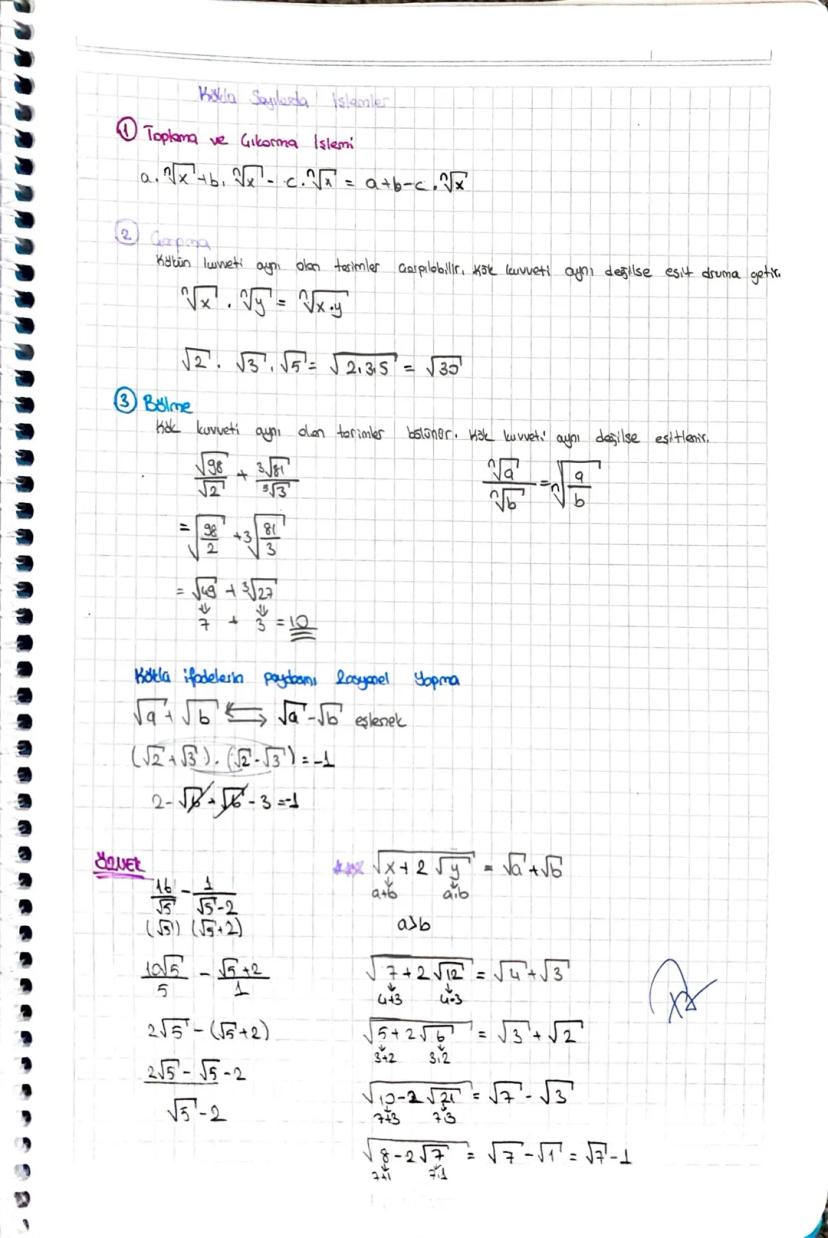 Köklü Sayılarda İşlemler
① Toplama ve Çıkarma İşlemi
a.ⁿ√x + b.ⁿ√x - c.ⁿ√x = a+b-c.ⁿ√x
② Çarpma
Kökün kuvveti aynı olan terimler çarpılabilir. Kök kuvveti aynı değilse eşit druma getir.
ⁿ√x . ⁿ√y = ⁿ√(x.y)
√2 . √3 . √5 = √(2.3.5) = √30
③ Bölme
Kök kuvveti aynı olan terimler bölüner. Kök kuvveti aynı değilse eşitlenir.
√98/√2 + ³√81/³√3
ⁿ√a/ⁿ√b = ⁿ√(a/b)
= √(98/2) + ³√(81/3)
= √49 + ³√27
7 + 3 = 10
Köklü ifadelerin paydasını Rasyonel Yapma
√a + √b ⇐⇒ √a - √b eşlenek
(√2 + √3) . (√2 - √3) = -1
2 - √6 + √6 - 3 = -1
ÖRNEK
16/√5 - 1/(√5-2)
(√5) (√5+2)
10√5/5 - (√5+2)/1
2√5 - (√5+2)
2√5 - √5 - 2
√5 - 2
*** √(x + 2√y) = √a + √b
a+b a.b
a>b
√(7 + 2√12) = √4 + √3
4+3 4.3
√(5 + 2√6) = √3 + √2
3+2 3.2
√(10 - 2√21) = √7 - √3
7+3 7.3
√(8 - 2√7) = √7 - √1 = √7 - 1
7+1 7.1